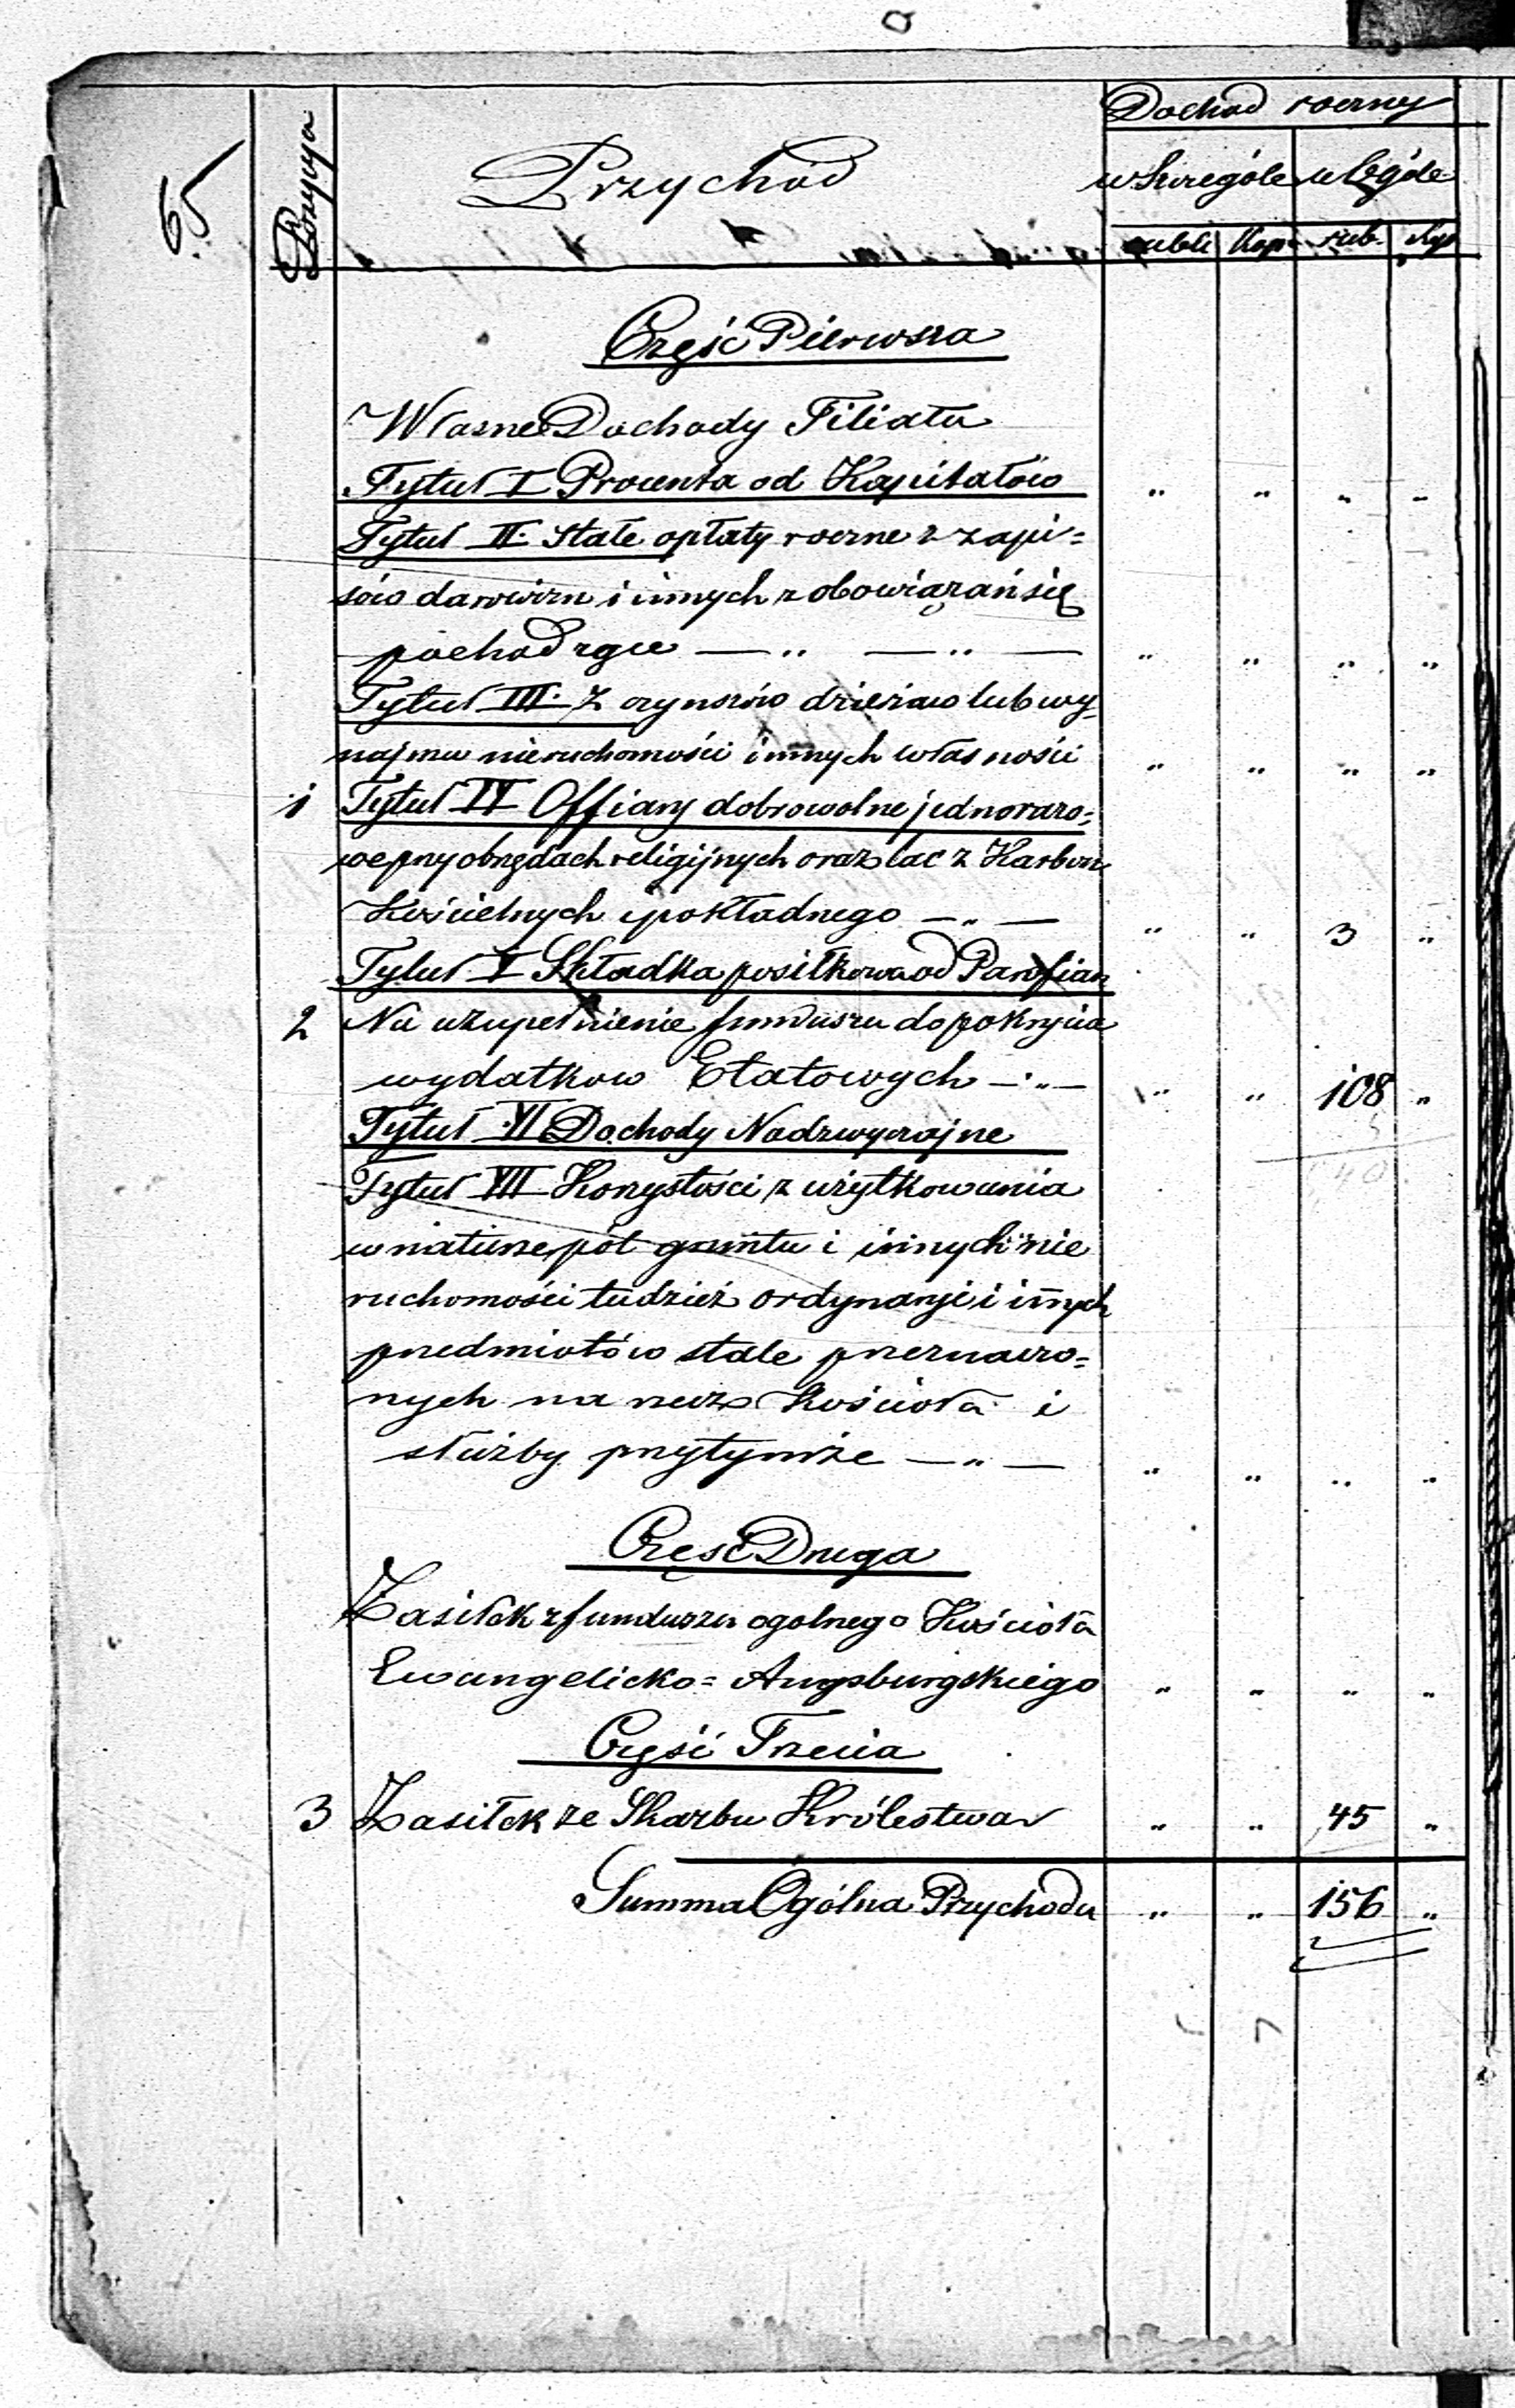 65
Pozycya
Przychód
Dochod roczny
w Szczególe w Ogóle
rubli Kop. rub. Kop
Część Pierwsza
Własne Dochody Filiału
Tytuł I Procenta od Kapitałów " " " "
Tytuł II. Stałe opłaty roczne z zapi=
sów darowizn i innych zobowiązań się
pochodzące — " — " — " " " "
Tytuł III. Z czynszów dzierżaw lub wy-
najmu nieruchomości innych własności " " " "
1 Tytuł IV Offiary dobrowolne jednorazo=
we przy obrzędach religijnych oraz tac z Karbon
Kościelnych i pokładnego — " — " " 3 "
Tytuł V Składka posiłkowa od Parafian
2 Na uzupełnienie funduszu do pokrycia
wydatkow Etatowych — " — " " 108 "
Tytuł VI Dochody Nadzwyczajne
Tytuł VII Korzystości z użytkowania
w naturze pól gruntu i innych nie
ruchomości tudzież ordynaryi i innych
przedmiotów stale przeznaczo=
nych na rzecz Kościoła i
służby przytymże — " — " " " "
Część Druga
Zasiłek z funduszu ogolnego Kościoła
Ewangelicko=Augsburgskiego " " " "
Część Trzecia
3 Zasiłek ze Skarbu Królestwa " " 45 "
Summa Ogólna Przychodu " " 156 "